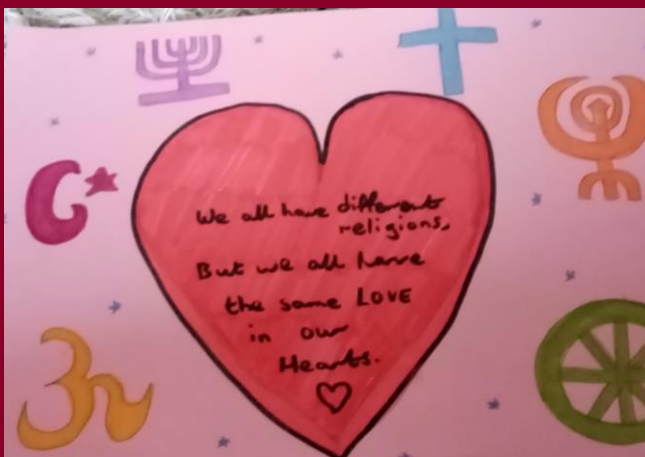 We all have different
religions.
But we all have
the same LOVE
in our
Hearts.